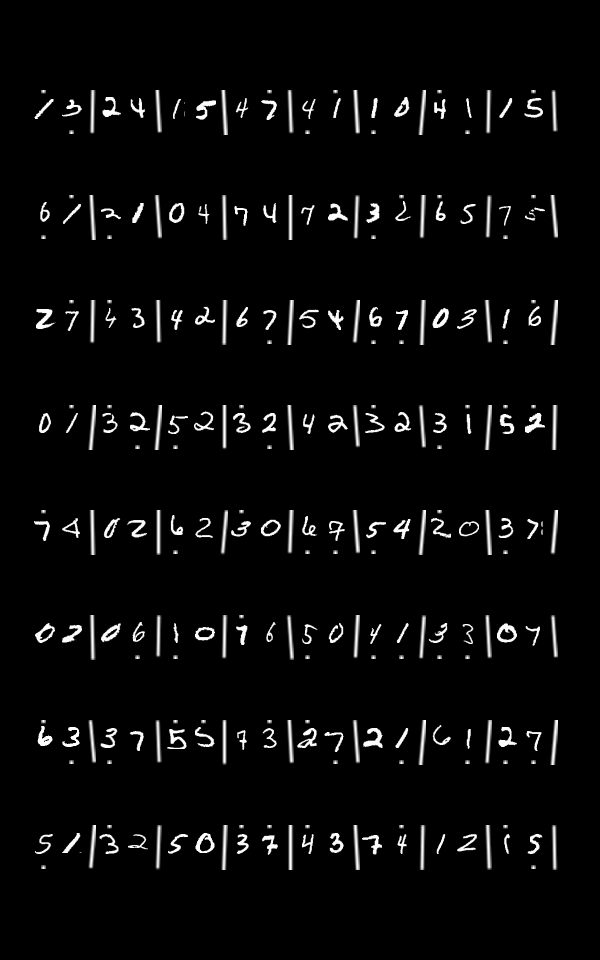 1 3 | 2 4 | 1 5 | 4 7 | 4 1 | 1 0 | 4 1 | 1 5 |
6 1 | 2 1 | 0 4 | 7 4 | 7 2 | 3 2 | 6 5 | 7 5 |
2 7 | 4 3 | 4 2 | 6 7 | 5 4 | 6 7 | 0 3 | 1 6 |
0 1 | 3 2 | 5 2 | 3 2 | 4 2 | 3 2 | 3 1 | 5 2 |
7 4 | 0 2 | 6 2 | 3 0 | 6 7 | 5 4 | 2 0 | 3 7 |
0 2 | 0 6 | 1 0 | 7 6 | 5 0 | 4 1 | 3 3 | 0 7 |
6 3 | 3 7 | 5 5 | 7 3 | 2 7 | 2 1 | 6 1 | 2 7 |
5 1 | 3 2 | 5 0 | 3 7 | 4 3 | 7 4 | 1 2 | 1 5 |